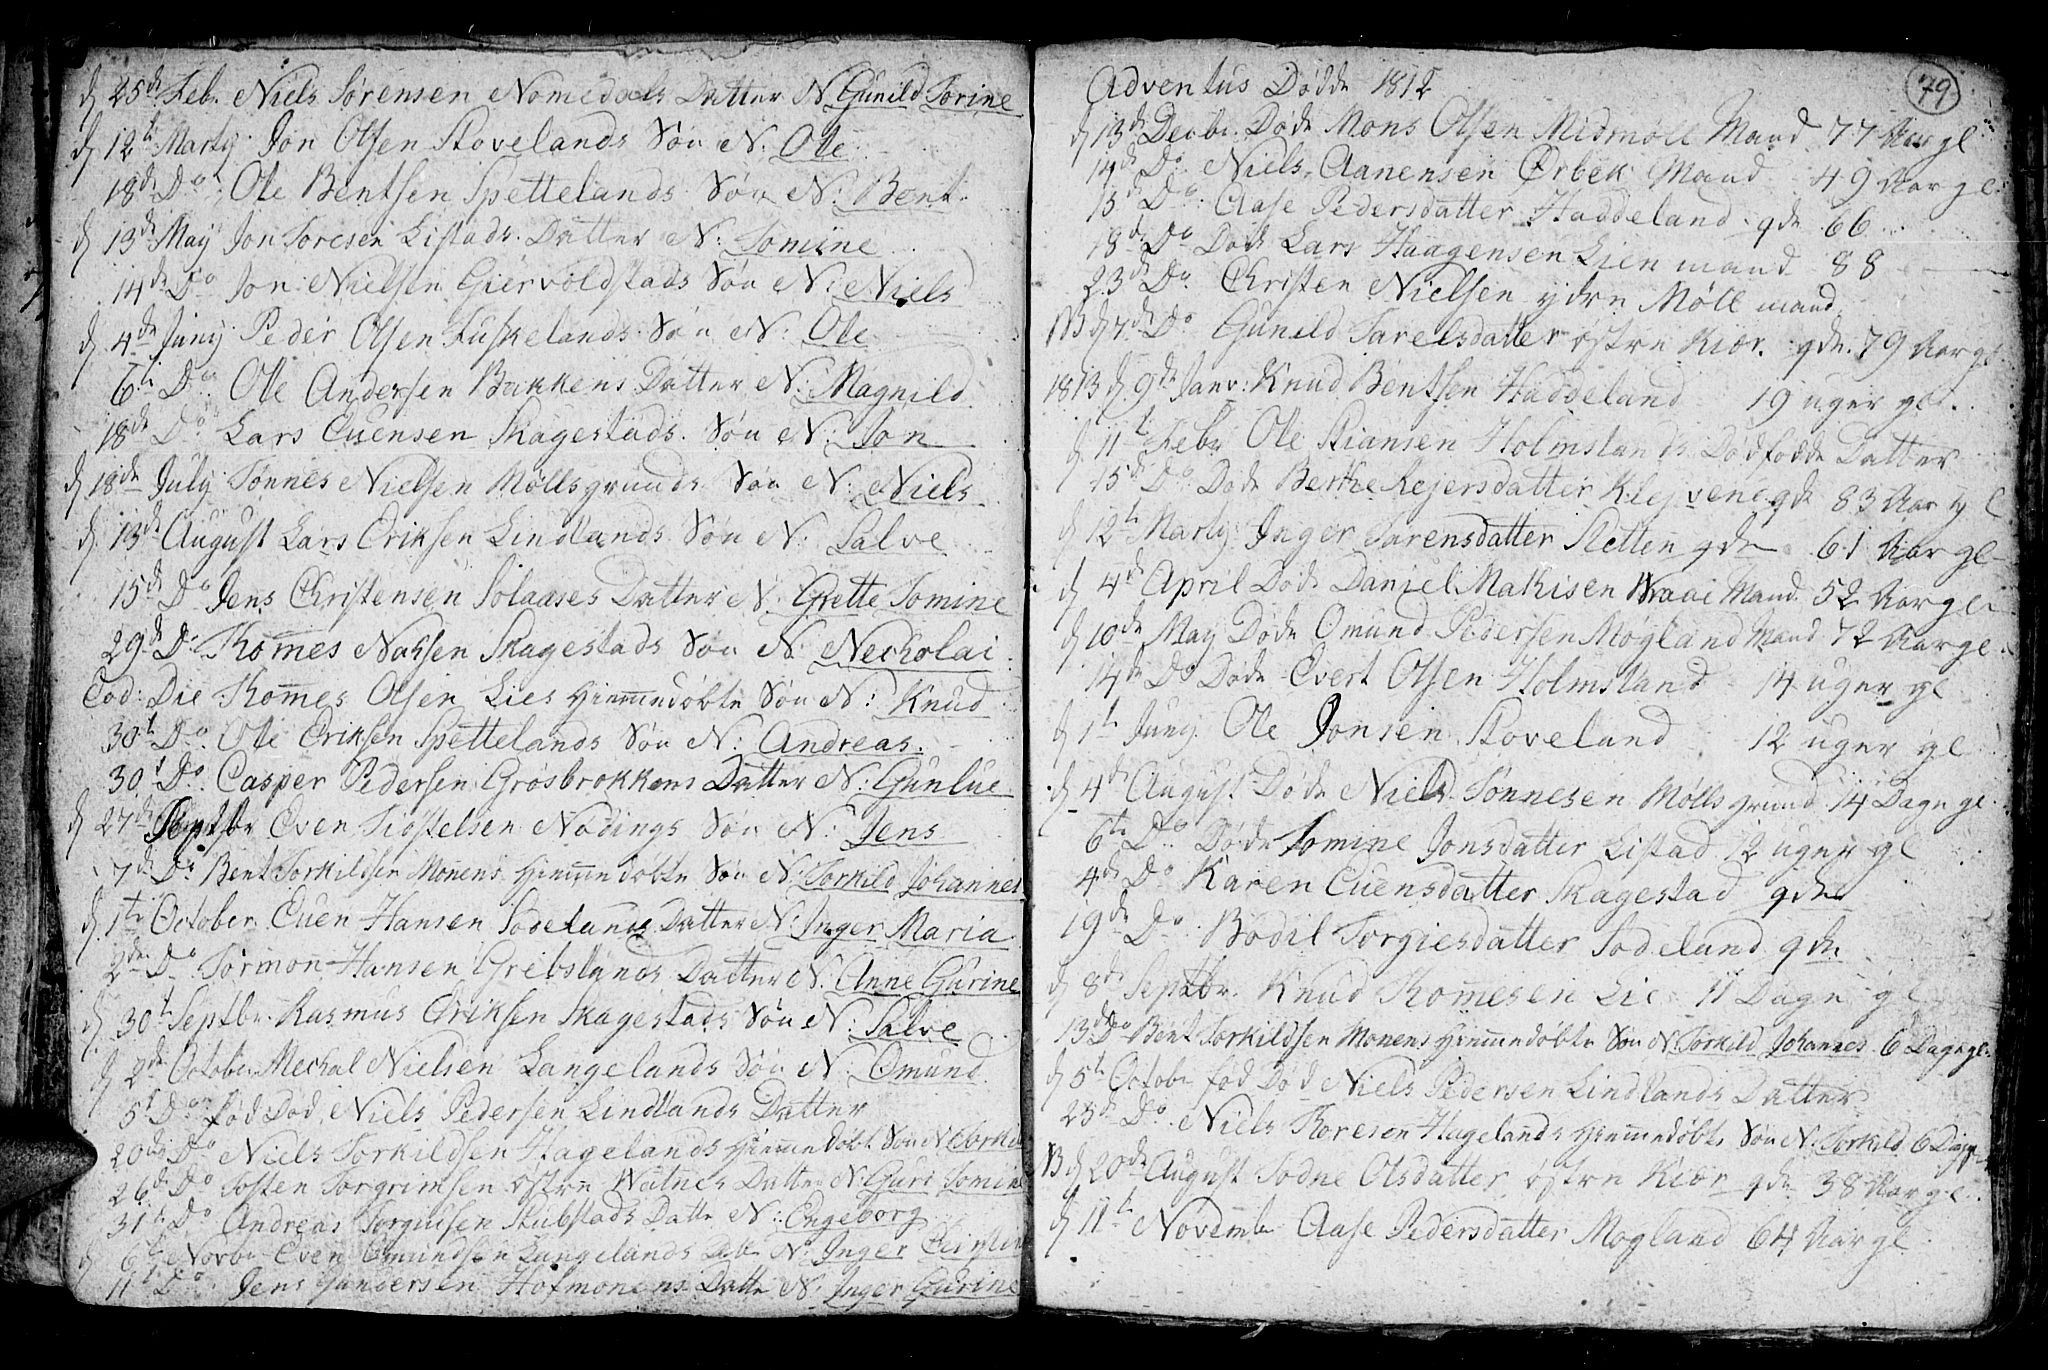 d 25de Feb. Niels Sørensen Nomedals Datter N. Gunild Sorine
d 12te Marty Jon Olsen Stovelands Søn N. Ole
18de Do Ole Bentsen Spettelands Søn N: Bent
d 13de May Jon Soresen Listads Datter N: Tomine
14de Do Jon Nielsen Giervoldstads Søn N: Niels
d 4de Juny Peder Olsen Fuskelands Søn N: Ole
6te Do Ole Andersen Bakkens Datter N: Magnild
18de Do Lars Evensen Skagestads Søn N: Jon
d 18de July Tønnes Nielsen Møllsgrunds Søn N: Niels
d 13de August Lars Eriksen Lindlands Søn N: Salve
15de Do Jens Christensen Solaases Datter N: Grette Tomine
29de Do Thomes Nassen Skagestads Søn N: Necholai
Eod: Die Thomes Olsen Lies Hiemmedøbte Søn N: Knud
30te Do Ole Eriksen Spettelands Søn N: Andreas
30t Do Casper Pedersen Grøsbrokkens Datter N: Gunlue
d 27de Septbr Even Siostelsen Nødings Søn N: Jens
7de Do Bent Torkildsen Monens Hiemmedøbte Søn N: Torkild Johannes
d 1te October Even Hansen Sodelands Datter N: Inger Maria
2den Do Tormon Hansen Grebslands Datter N: Anne Gurine
d 30t Septbr Rasmus Eriksen Skagestads Søn N: Salve
d 2de Octobr Mechal Nielsen Langelands Søn N: Omund
5t Do fød Død Niels Pedersen Lindlands Datter
20de Do Niels Torkildsen Hagelands Hiemmedøbte Søn N
26de Do Tosten Torgrimsen østre Watnes Datter N: Guri Tomine
31te Do Andreas Torguisen Stubstads Datte N: Engeborg
d 6te Novbr Even Omundsen Langelands Datte N: Inger
11te Do Jens Gundersen Hofmonens Datte N: Inger Gurine
79
Adventus Dødde 1812
d 13de Decbr. Døde Mons Olsen Midmøll Mand 77 Aar gl
14de Do Niels Aanensen Ørbek Mand 49 Aar gl
15de Do Aase Pedersdatter Haddeland qde 66
18de Do Døde Lars Haagensen Lien mand 88
23de Do Christen Nielsen ydre Møll mand
NB d 7de Do Gunild Tarelsdatter østre Kiær qde. 79 Aar gl
1813 d 9de Janv: Knud Bentsen Haddeland 19 uger gl
d 11te Feby Ole Stiansen Holmslands Dødfødde Datter
15de Do Døde Berthe Rejersdatter Klejvene qde 83 Aar gl
d 12te Marty Inger Tarensdatter Sletten qde 61 Aar gl
d 4de April Døde Daniel Mathisen Wraai Mand 52 Aar gl
d 10de May Døde Omund Pedersen Møgland Mand 72 Aar gl
14de Do Døde Evert Olsen Holmsland 14 uger gl
d 1te Juny Ole Jonsen Stoveland 12 uger gl
d 4de August Døde Niels Tønnesen Møllsgrund 14 Dage gl
6te Do Døde Tomine Jonsdatter Listad 12 uger gl
4de Do Karen Evensdatter Skagestad qde
19de Do Bodil Torgiesdatter Sodeland qde
d 8de Septbr. Knud Thomesen Lie 11 Dage gl
13de Do Bent Torkildsen Monens Hiemmedøbte Søn N: Torkild Johannes 6 Dage gl
d 5te Octobr fød Død Niels Pedersen Lindlands Datter
25de Do Niels Thoresen Hagelands Hiemmedøbte Søn N. Torkild 6 Dage
NB d 20de August Sødne Olsdatter østre Kiær qde 38 Aar gl
d 11te Novembr Aase Pedersdatter Mogland 64 Aar gl